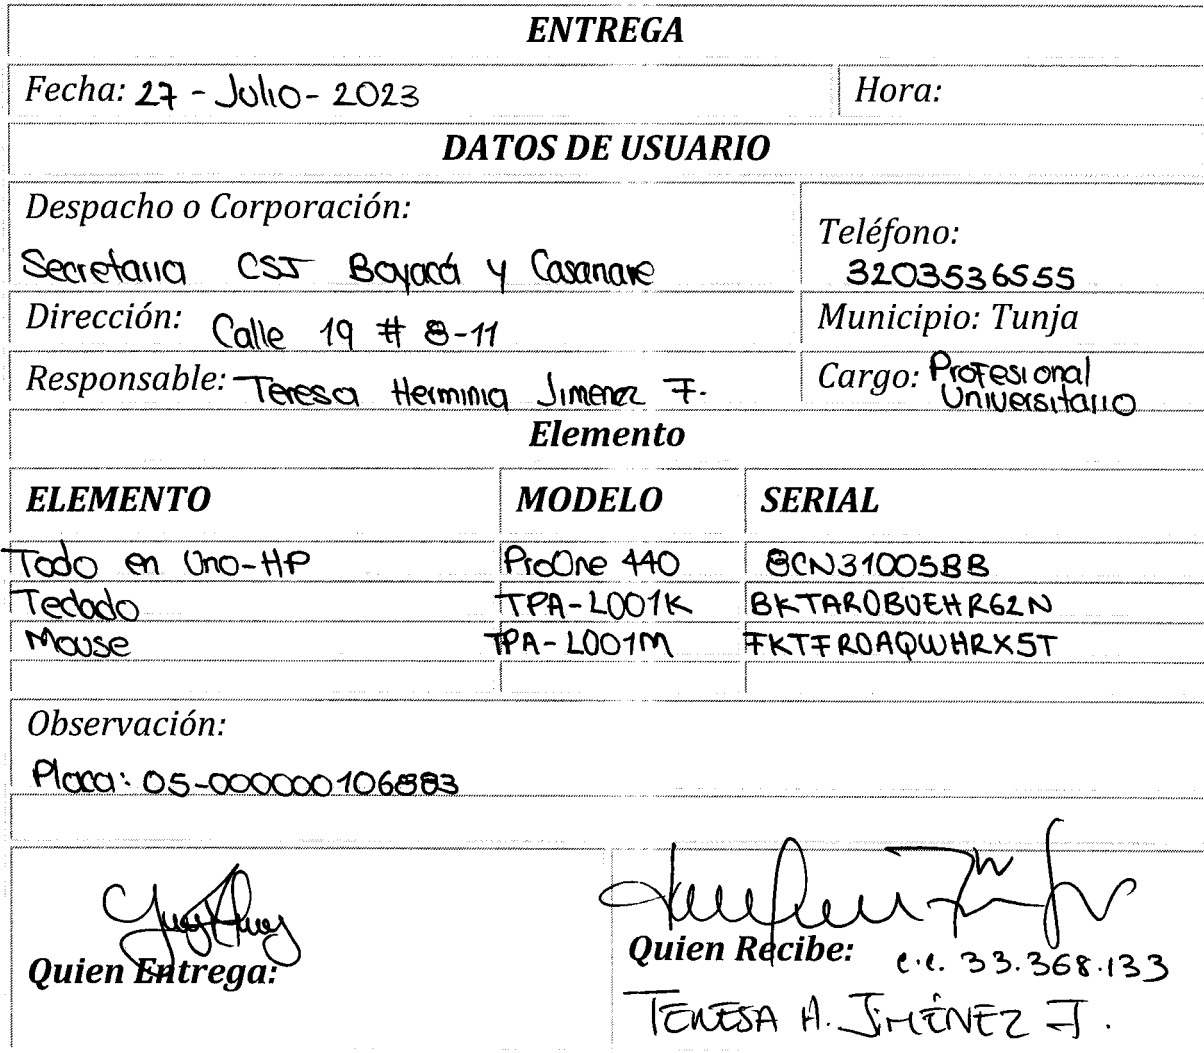 ENTREGA
Fecha: 27 - Julio - 2023 Hora:
DATOS DE USUARIO
Despacho o Corporación:
Secretaria CSJ Boyacá y Casanare
Teléfono:
3203536555
Dirección: Calle 19 # 8-11
Municipio: Tunja
Responsable: Teresa Herminia Jimenez F.
Cargo: Profesional
Universitario
Elemento
ELEMENTO MODELO SERIAL
Todo en Uno-HP ProOne 440 8CN31005BB
Teclado TPA-L001K BKTAR0BUEHR62N
Mouse TPA-L001M FKTFR0AQWHRX5T
Observación:
Placa: 05-000000106883
Quien Entrega:
Quien Recibe: c.c. 33.368.133
TERESA H. JIMÉNEZ F.